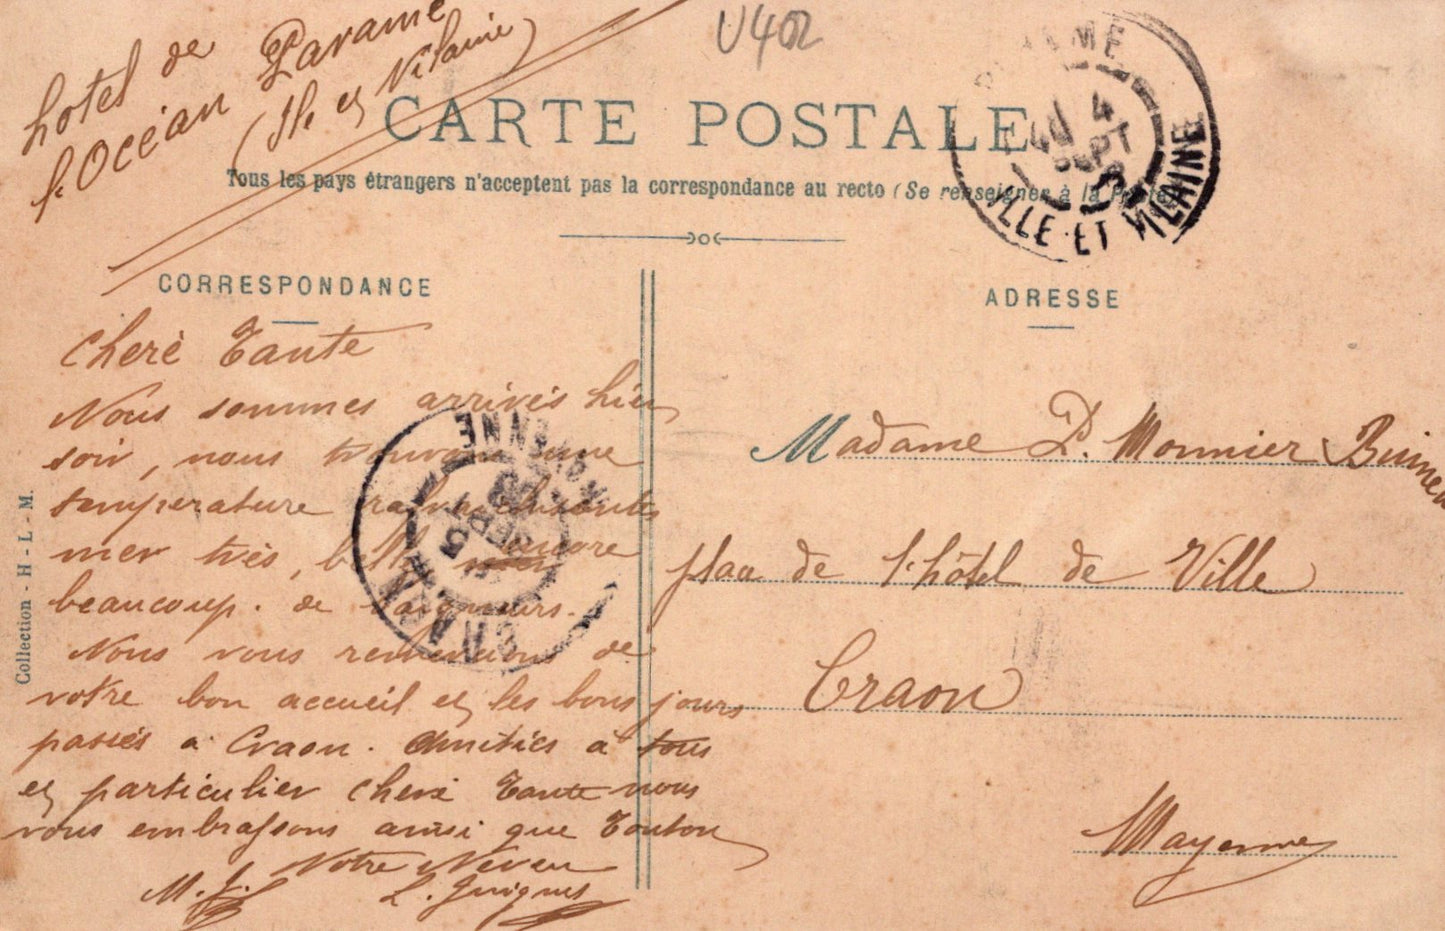 U402
hotel de
l'Océan Paramé
(Ile et Vilaine)
CARTE POSTALE
Tous les pays étrangers n'acceptent pas la correspondance au recto (Se renseigner à la Poste)
PARAMÉ
4
SEPT
ILLE-ET-VILAINE
CORRESPONDANCE
cherè Tante
Nous sommes arrivés hier
soir, nous trouvons une
temperature rafraichissante
mer très, belle encore
beaucoup. de baigneurs.
Nous vous remercions de
votre bon accueil et les bons jours
passés a Craon. Amitiés à tous
et particulier cherè Tante nous
vous embrassons ainsi que Tonton
Votre Neveu
M. J.
L. Guignes
CRAON
MAYENNE
5
SEPT
03
ADRESSE
Madame P. Monnier
place de l'hôtel de Ville
Craon
Mayenne
Collection - H - L - M.